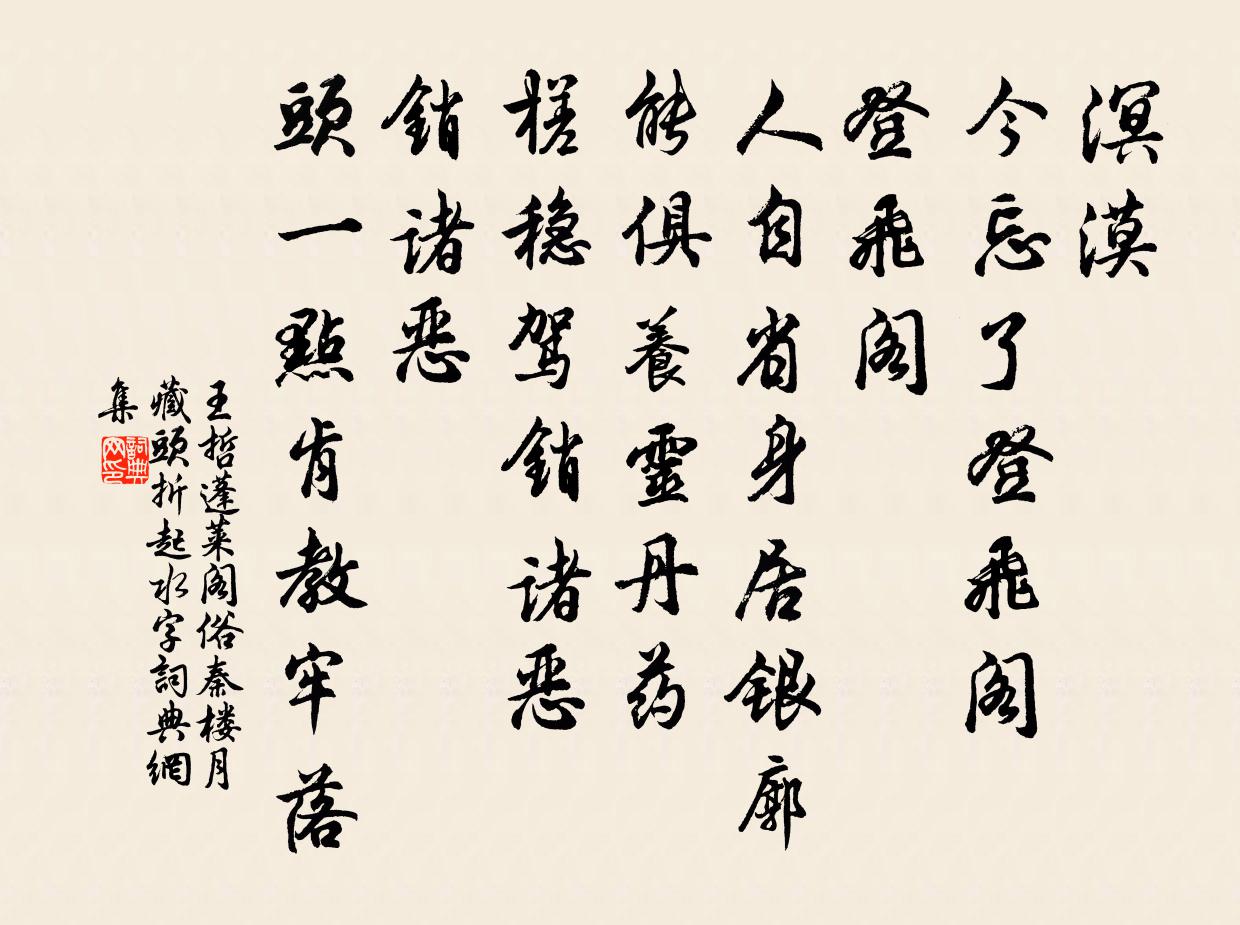 溟漠
今忘了登飛閣
登飛閣
人自省身居銀廓
能俱養靈丹药
槎穏駕銷諸恶
銷諸恶
頭一點肯教牢落
王哲蓬莱阁俗秦楼月
藏頭折起水字詞典網
集
詞典网印